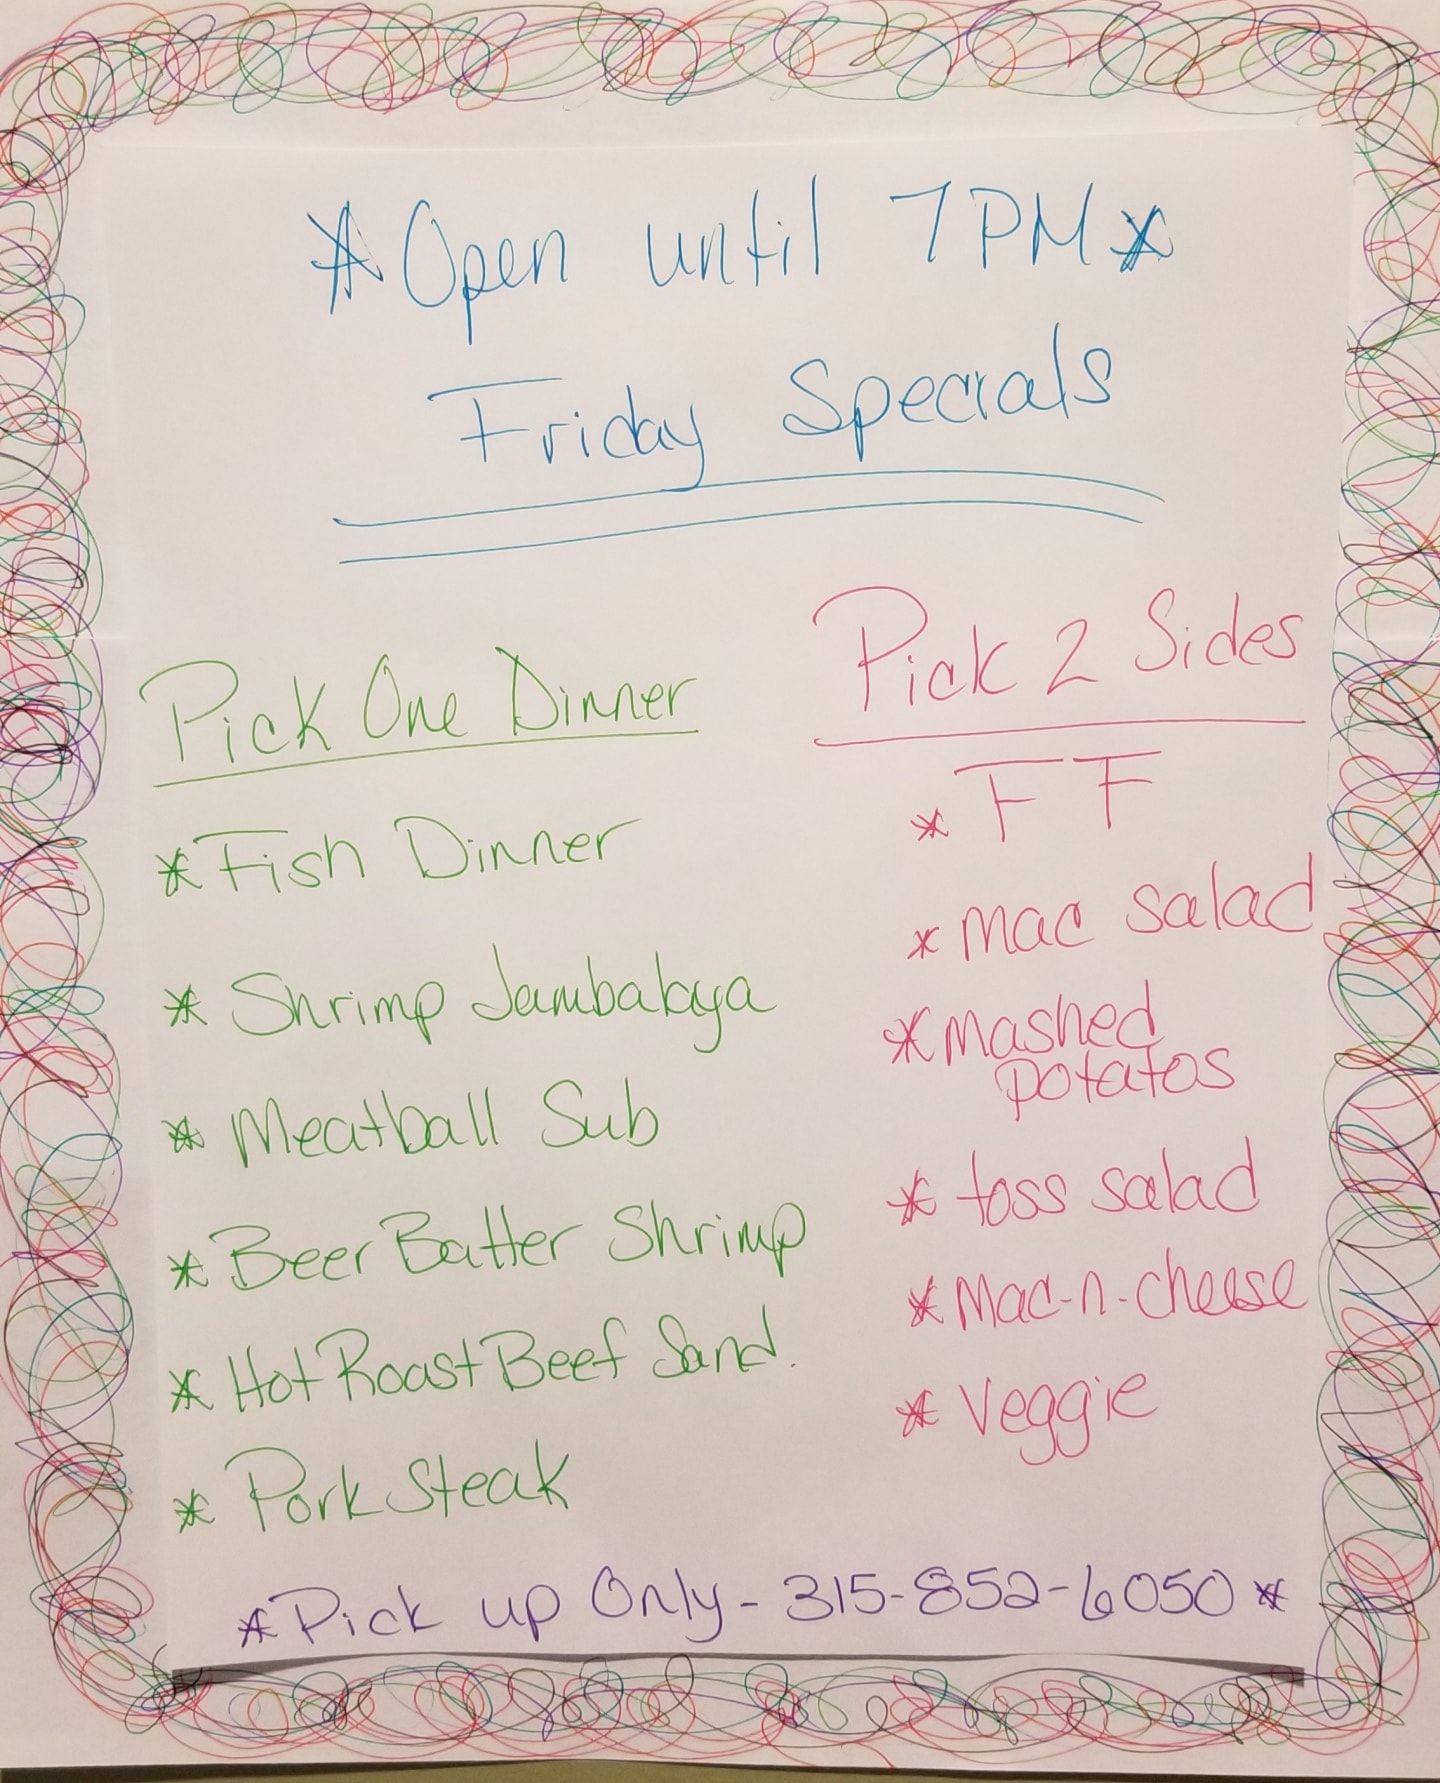 *Open until 7PM*
Friday Specials
Pick One Dinner
*Fish Dinner
* Shrimp Jambalaya
* Meatball Sub
* Beer Batter Shrimp
* Hot Roast Beef Sand.
* Pork Steak
Pick 2 Sides
* FF
* mac salad
*mashed
potatos
* toss salad
*Mac-n-cheese
* Veggie
*Pick up Only - 315-852-6050*